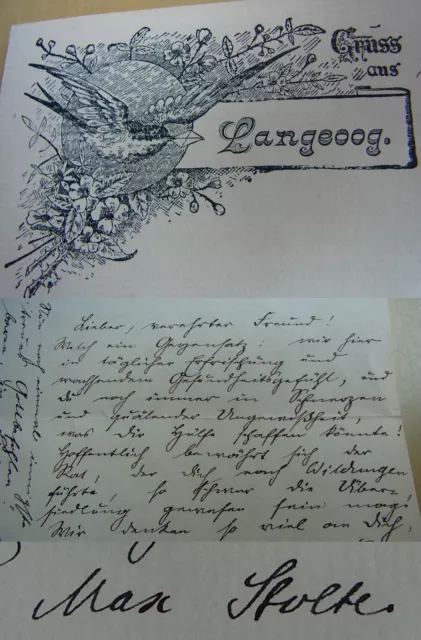 Gruss
aus
Langeoog.
Lieber, verehrter Freund!
Welch ein Gegensatz: wir hier
in täglicher Erfrischung und
wachsendem Gesundheitsgefühl, und
du noch immer in Schmerzen
und quälender Ungewißheit,
was Dir Hülfe schaffen könnte!
Hoffentlich bewährt sich der
Rat, der dich nach Wildungen
führte, so schwer die Über-
siedlung gewesen sein mag!
Wir denken so viel an Dich,
Nun noch einmal
Max Stolte.